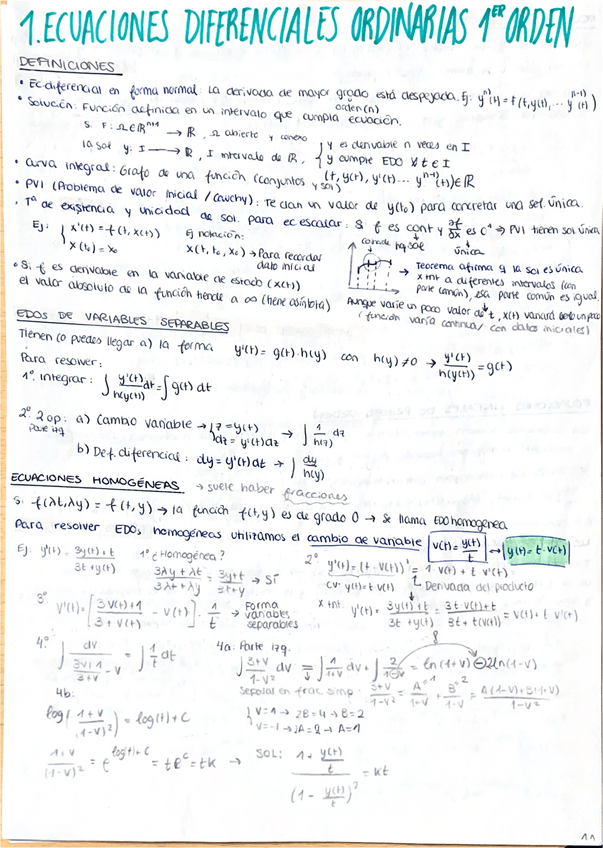 1. ECUACIONES DIFERENCIALES ORDINARIAS 1ER ORDEN
DEFINICIONES
• Ec. diferencial en forma normal: La derivada de mayor grado está despejada. Ej: yⁿ⁾(t) = f(t, y(t), ... yⁿ⁻¹⁾(t))
• Solución: Función definida en un intervalo que cumpla ecuación. orden(n)
Si F: Ω ∈ ℝⁿ⁺¹ → ℝ, Ω abierto y conexo
la sol y: I → ℝ, I intervalo de ℝ, { y es derivable n veces en I
y cumple EDO ∀ t ∈ I
(t, y(t), y'(t) ... yⁿ⁻¹⁾(t)) ∈ ℝ
• Curva integral: Grafo de una función (conjuntos y sol)
• PVI (Problema de valor inicial / Cauchy): Te dan un valor de y(t₀) para concretar una sol. única.
• Tª de existencia y unicidad de sol. para ec escalar: Si f es cont y ∂f/∂x es C¹ → PVI tienen sol única
Ej: { x'(t) = f(t, x(t))
x(t₀) = x₀
Ej notación:
x(t, t₀, x₀) → Para recordar dato inicial
única
→ Teorema afirma q la sol es única
x tnt a diferentes intervalos (con
parte común), esa parte común es igual.
• Si f es derivable en la variable de estado (x(t))
el valor absoluto de la función tiende a ∞ (tiene asíntota)
Aunque varíe un poco valor de t, x(t) variará solo un poco
(función varía continua con datos iniciales)
EDOS DE VARIABLES SEPARABLES
Tienen (o puedes llegar a) la forma y'(t) = g(t)·h(y) con h(y) ≠ 0 → y'(t)/h(y(t)) = g(t)
Para resolver:
1º. Integrar: ∫ y'(t)/h(y(t)) dt = ∫ g(t) dt
2º. 2 op: a) Cambio variable → { z = y(t)
dz = y'(t)dz → ∫ 1/h(z) dz
Parte izq
b) Def. diferencial: dy = y'(t) dt → ∫ dy/h(y)
ECUACIONES HOMOGÉNEAS → suele haber fracciones
Si f(λt, λy) = f(t, y) → la función f(t, y) es de grado 0 → Se llama EDO homogénea
Para resolver EDOs homogéneas utilizamos el cambio de variable v(t) = y(t)/t → y(t) = t·v(t)
Ej: y'(t) = (3y(t) + t)/(3t + y(t))
1º ¿Homogénea?
(3λy + λt)/(3λt + λy) = (3y + t)/(3t + y) → Sí
2º. y'(t) = (t·v(t))' = 1·v(t) + t v'(t)
CV: y(t) = t v(t)
↳ Derivada del producto
x tnt: y'(t) = (3y(t) + t)/(3t + y(t)) = (3t·v(t) + t)/(3t + t(v(t))) = v(t) + t v'(t)
3º. v'(t) = [(3v(t) + 1)/(3 + v(t)) - v(t)] · 1/t → Forma variables separables
4º. ∫ dv/((3v+1)/(3+v) - v) = ∫ 1/t dt
4a: Parte izq.
∫ (3+v)/(1-v²) dv = ∫ 1/(1+v) dv + ∫ 2/(1-v) = ln(1+v) ⊖ 2ln(1-v)
Separar en frac simp: (3+v)/(1-v²) = A/(1+v) + B/(1-v) = (A(1-v) + B(1+v))/(1-v²)
{ v = 1 → 2B = 4 → B = 2
v = -1 → 2A = 2 → A = 1
4b:
log((1+v)/(1-v)²) = log(t) + C
(1+v)/(1-v)² = e^(log(t)+C) = t e^C = tK →
SOL: (1 + y(t)/t)/(1 - y(t)/t)² = Kt